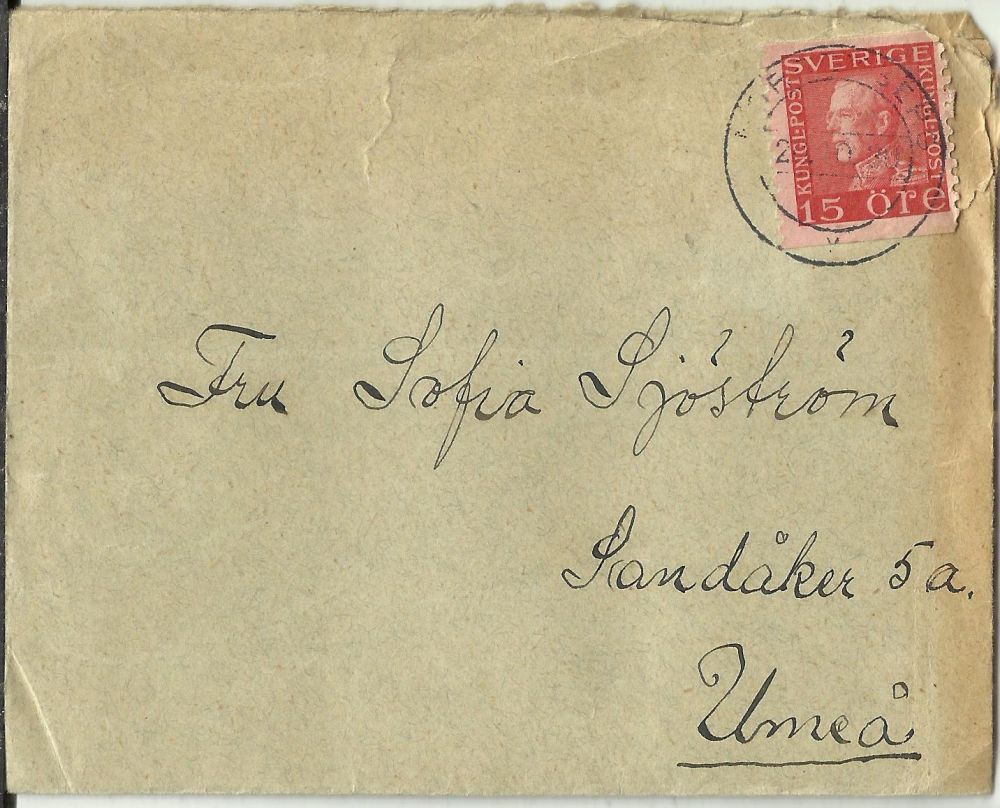 SVERIGE
KUNGL·POST
KUNGL·POST
15 öre
Fru Sofia Sjöström
Sandåker 5a.
Umeå